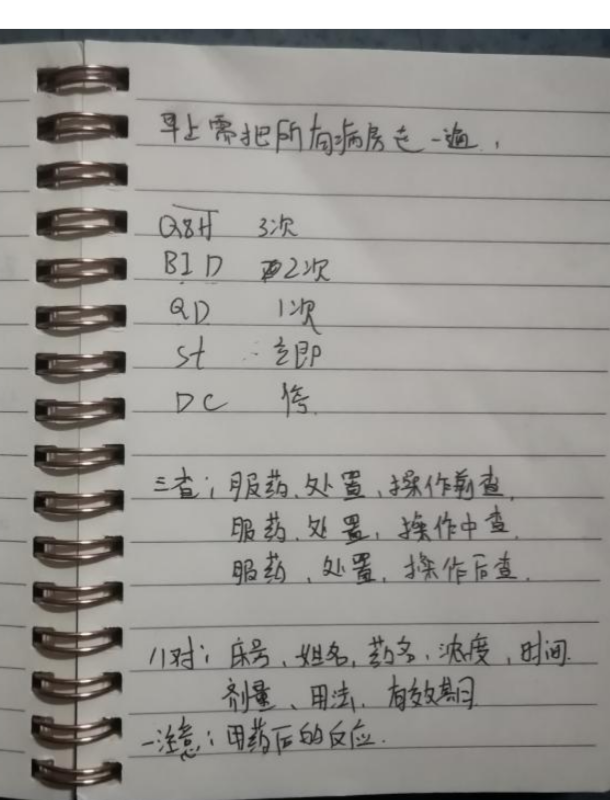 早上需把所有病房走一遍.
Q8H 3次
BID 2次
QD 1次
st 立即
DC 停.
三查:服药、处置、操作前查.
服药、处置、操作中查.
服药、处置、操作后查.
八对:床号、姓名、药名、浓度、时间.
剂量、用法、有效期.
一注意:用药后的反应.